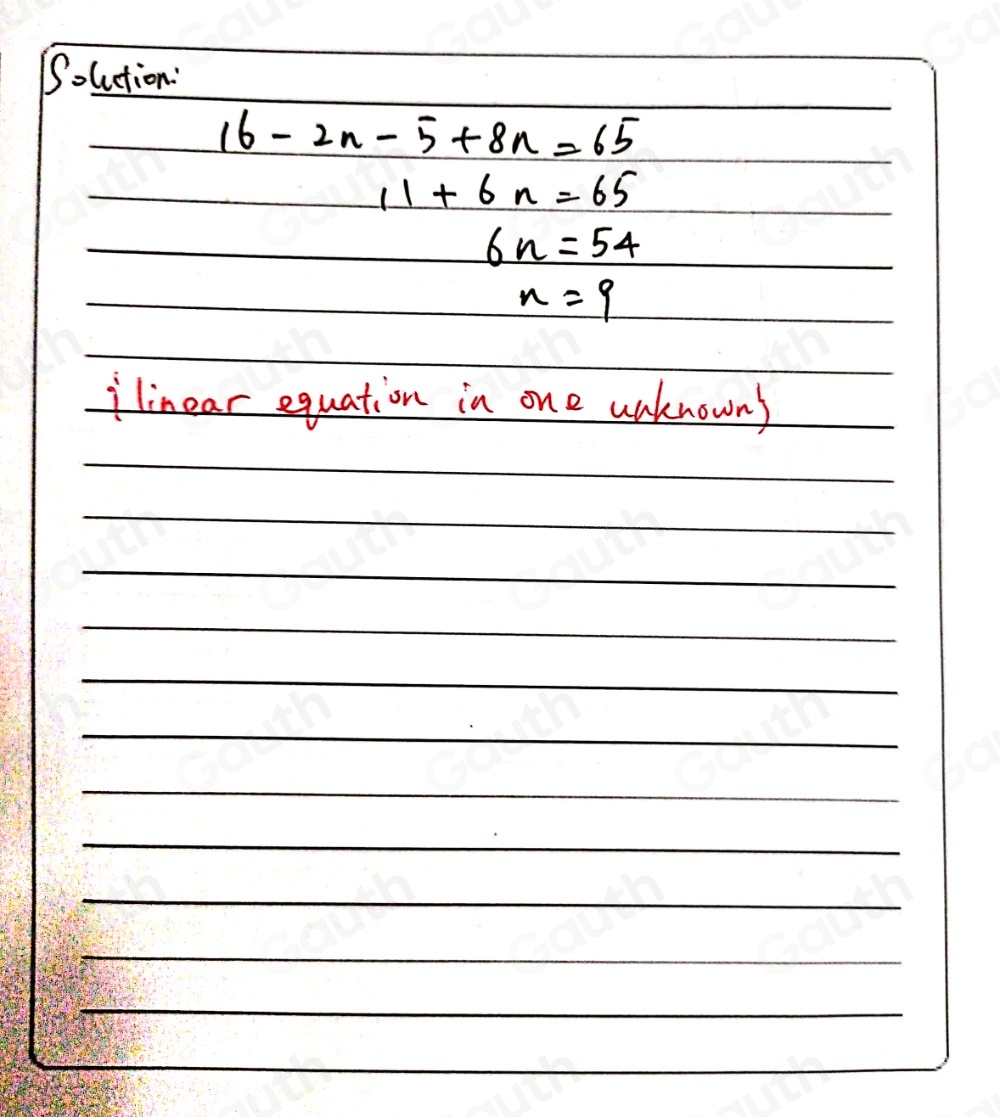 Solution:
16 - 2n - 5 + 8n = 65
11 + 6n = 65
6n = 54
n = 9
{linear equation in one unknown}
Gauth